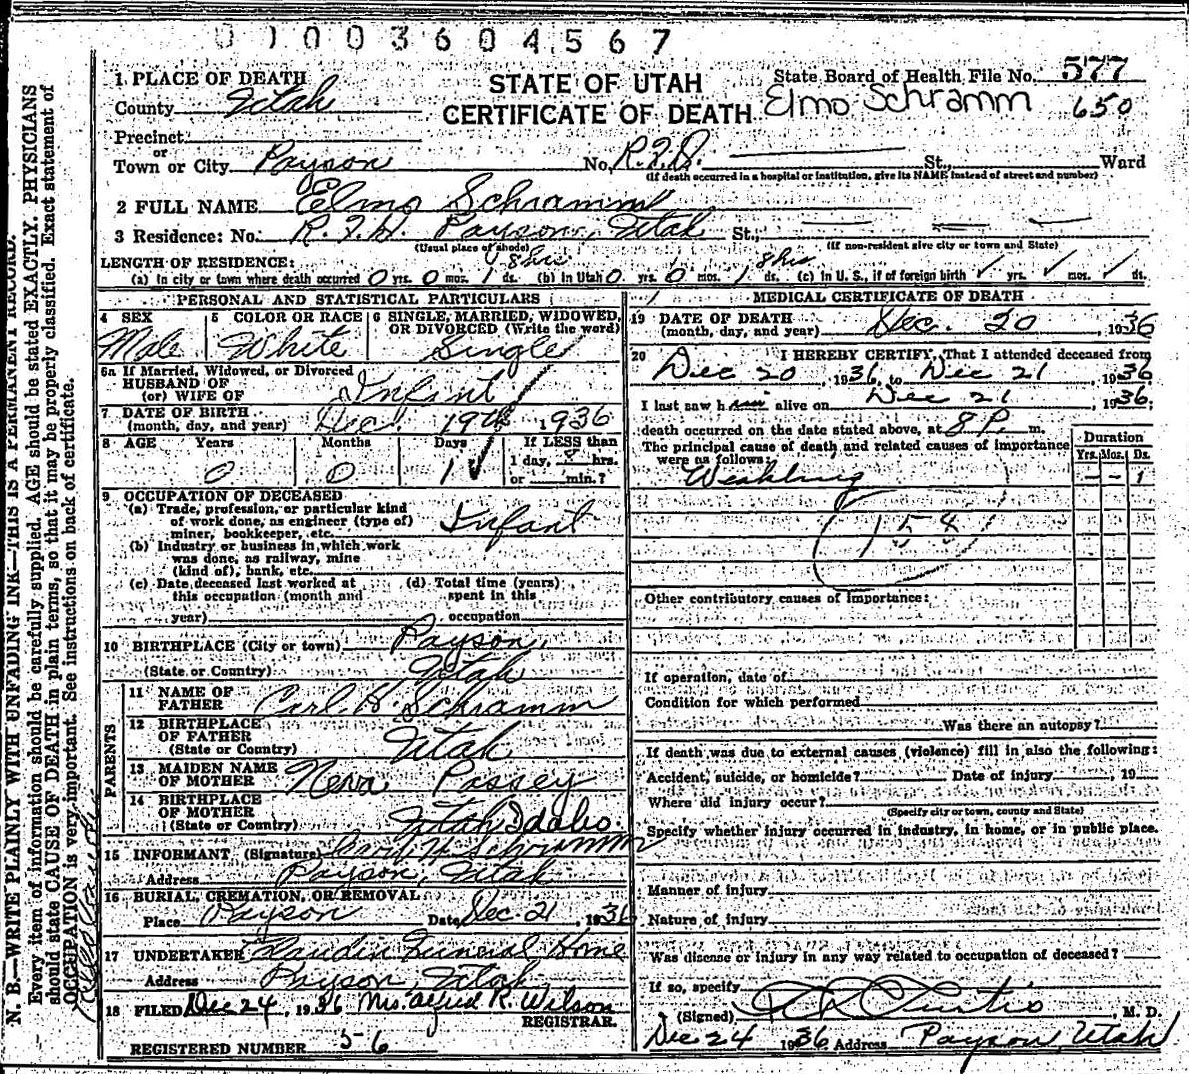 01003604567
1 PLACE OF DEATH
STATE OF UTAH
State Board of Health File No. 577
County Utah
CERTIFICATE OF DEATH
Elmo Schramm
650
Precinct
or
Town or City Payson No. R.F.D. St., Ward
(If death occurred in a hospital or institution, give its NAME instead of street and number)
2 FULL NAME Elmo Schramm
3 Residence: No. Payson, Utah St.,
(Usual place of abode)
(If non-resident give city or town and State)
LENGTH OF RESIDENCE: 8 hrs 8 hrs
(a) In city or town where death occurred 0 yrs. 0 mos. 1 ds. (b) In Utah 0 yrs. 0 mos. 1 ds. (c) In U. S., if of foreign birth ✓ yrs. ✓ mos. ✓ ds.
PERSONAL AND STATISTICAL PARTICULARS
4 SEX
Male
5 COLOR OR RACE
White
6 SINGLE, MARRIED, WIDOWED,
OR DIVORCED (Write the word)
Single
6a If Married, Widowed, or Divorced
HUSBAND OF
(or) WIFE OF Infant
7 DATE OF BIRTH
(month, day, and year) Dec. 19th 1936
8 AGE Years Months Days If LESS than
0 0 1 ✓ 1 day, 8 hrs.
or min.?
9 OCCUPATION OF DECEASED
(a) Trade, profession, or particular kind
of work done, as engineer (type of)
miner, bookkeeper, etc. Infant
(b) Industry or business in which work
was done, as railway, mine
(kind of), bank, etc.
(c) Date deceased last worked at
this occupation (month and
year)
(d) Total time (years)
spent in this
occupation
10 BIRTHPLACE (City or town) Payson,
(State or Country) Utah
PARENTS
11 NAME OF
FATHER Carl H. Schramm
12 BIRTHPLACE
OF FATHER
(State or Country) Utah
13 MAIDEN NAME
OF MOTHER Neva Passey
14 BIRTHPLACE
OF MOTHER
(State or Country) Utah Idaho.
15 INFORMANT (Signature) Carl H. Schramm
Address Payson, Utah
16 BURIAL, CREMATION, OR REMOVAL
Place Payson Date Dec 21 1936
17 UNDERTAKER Funeral Home
Address Payson, Utah
18 FILED Dec 24, 1936 Mrs. Alfred R. Wilson
REGISTRAR.
REGISTERED NUMBER 56
MEDICAL CERTIFICATE OF DEATH
19 DATE OF DEATH
(month, day, and year) Dec. 20, 1936
20 I HEREBY CERTIFY, That I attended deceased from
Dec 20, 1936, to Dec 21, 1936
I last saw him alive on Dec 21, 1936;
death occurred on the date stated above, at 8 P. m.
The principal cause of death and related causes of importance
were as follows:
Duration
Yrs. Mos. Ds.
Weakling — — 1
(158)
Other contributory causes of importance:
If operation, date of
Condition for which performed
Was there an autopsy?
If death was due to external causes (violence) fill in also the following:
Accident, suicide, or homicide? Date of injury , 19
Where did injury occur?
(Specify city or town, county and State)
Specify whether injury occurred in industry, in home, or in public place.
Manner of injury
Nature of injury
Was disease or injury in any way related to occupation of deceased?
If so, specify
(Signed) Curtis, M. D.
Dec 24 1936 Address Payson, Utah
N. B.—WRITE PLAINLY WITH UNFADING INK—THIS IS A PERMANENT RECORD.
Every item of information should be carefully supplied. AGE should be stated EXACTLY. PHYSICIANS
should state CAUSE OF DEATH in plain terms, so that it may be properly classified. Exact statement of
OCCUPATION is very important. See instructions on back of certificate.